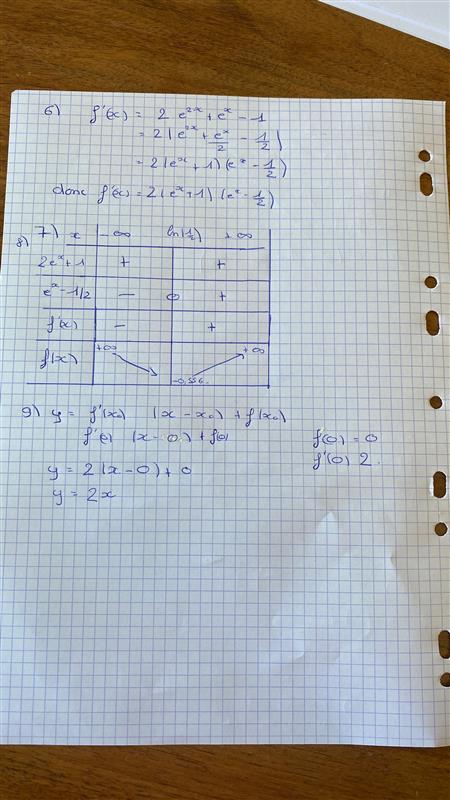 6) f'(x) = 2 e^{2x} + e^x - 1
= 2(e^{2x} + e^x/2 - 1/2)
= 2(e^x + 1)(e^x - 1/2)
donc f'(x) = 2(e^x + 1)(e^x - 1/2)
8) 7) x | -∞ ln(1/2) +∞
2e^x + 1 | + | +
e^x - 1/2 | - 0 +
f'(x) | - | +
f(x) | +∞ ↘ -0,556. ↗ +∞
9) y = f'(x₀) (x - x₀) + f(x₀)
(x - 0) + f(0) f(0) = 0
y = 2(x - 0) + 0 f'(0) 2.
y = 2x